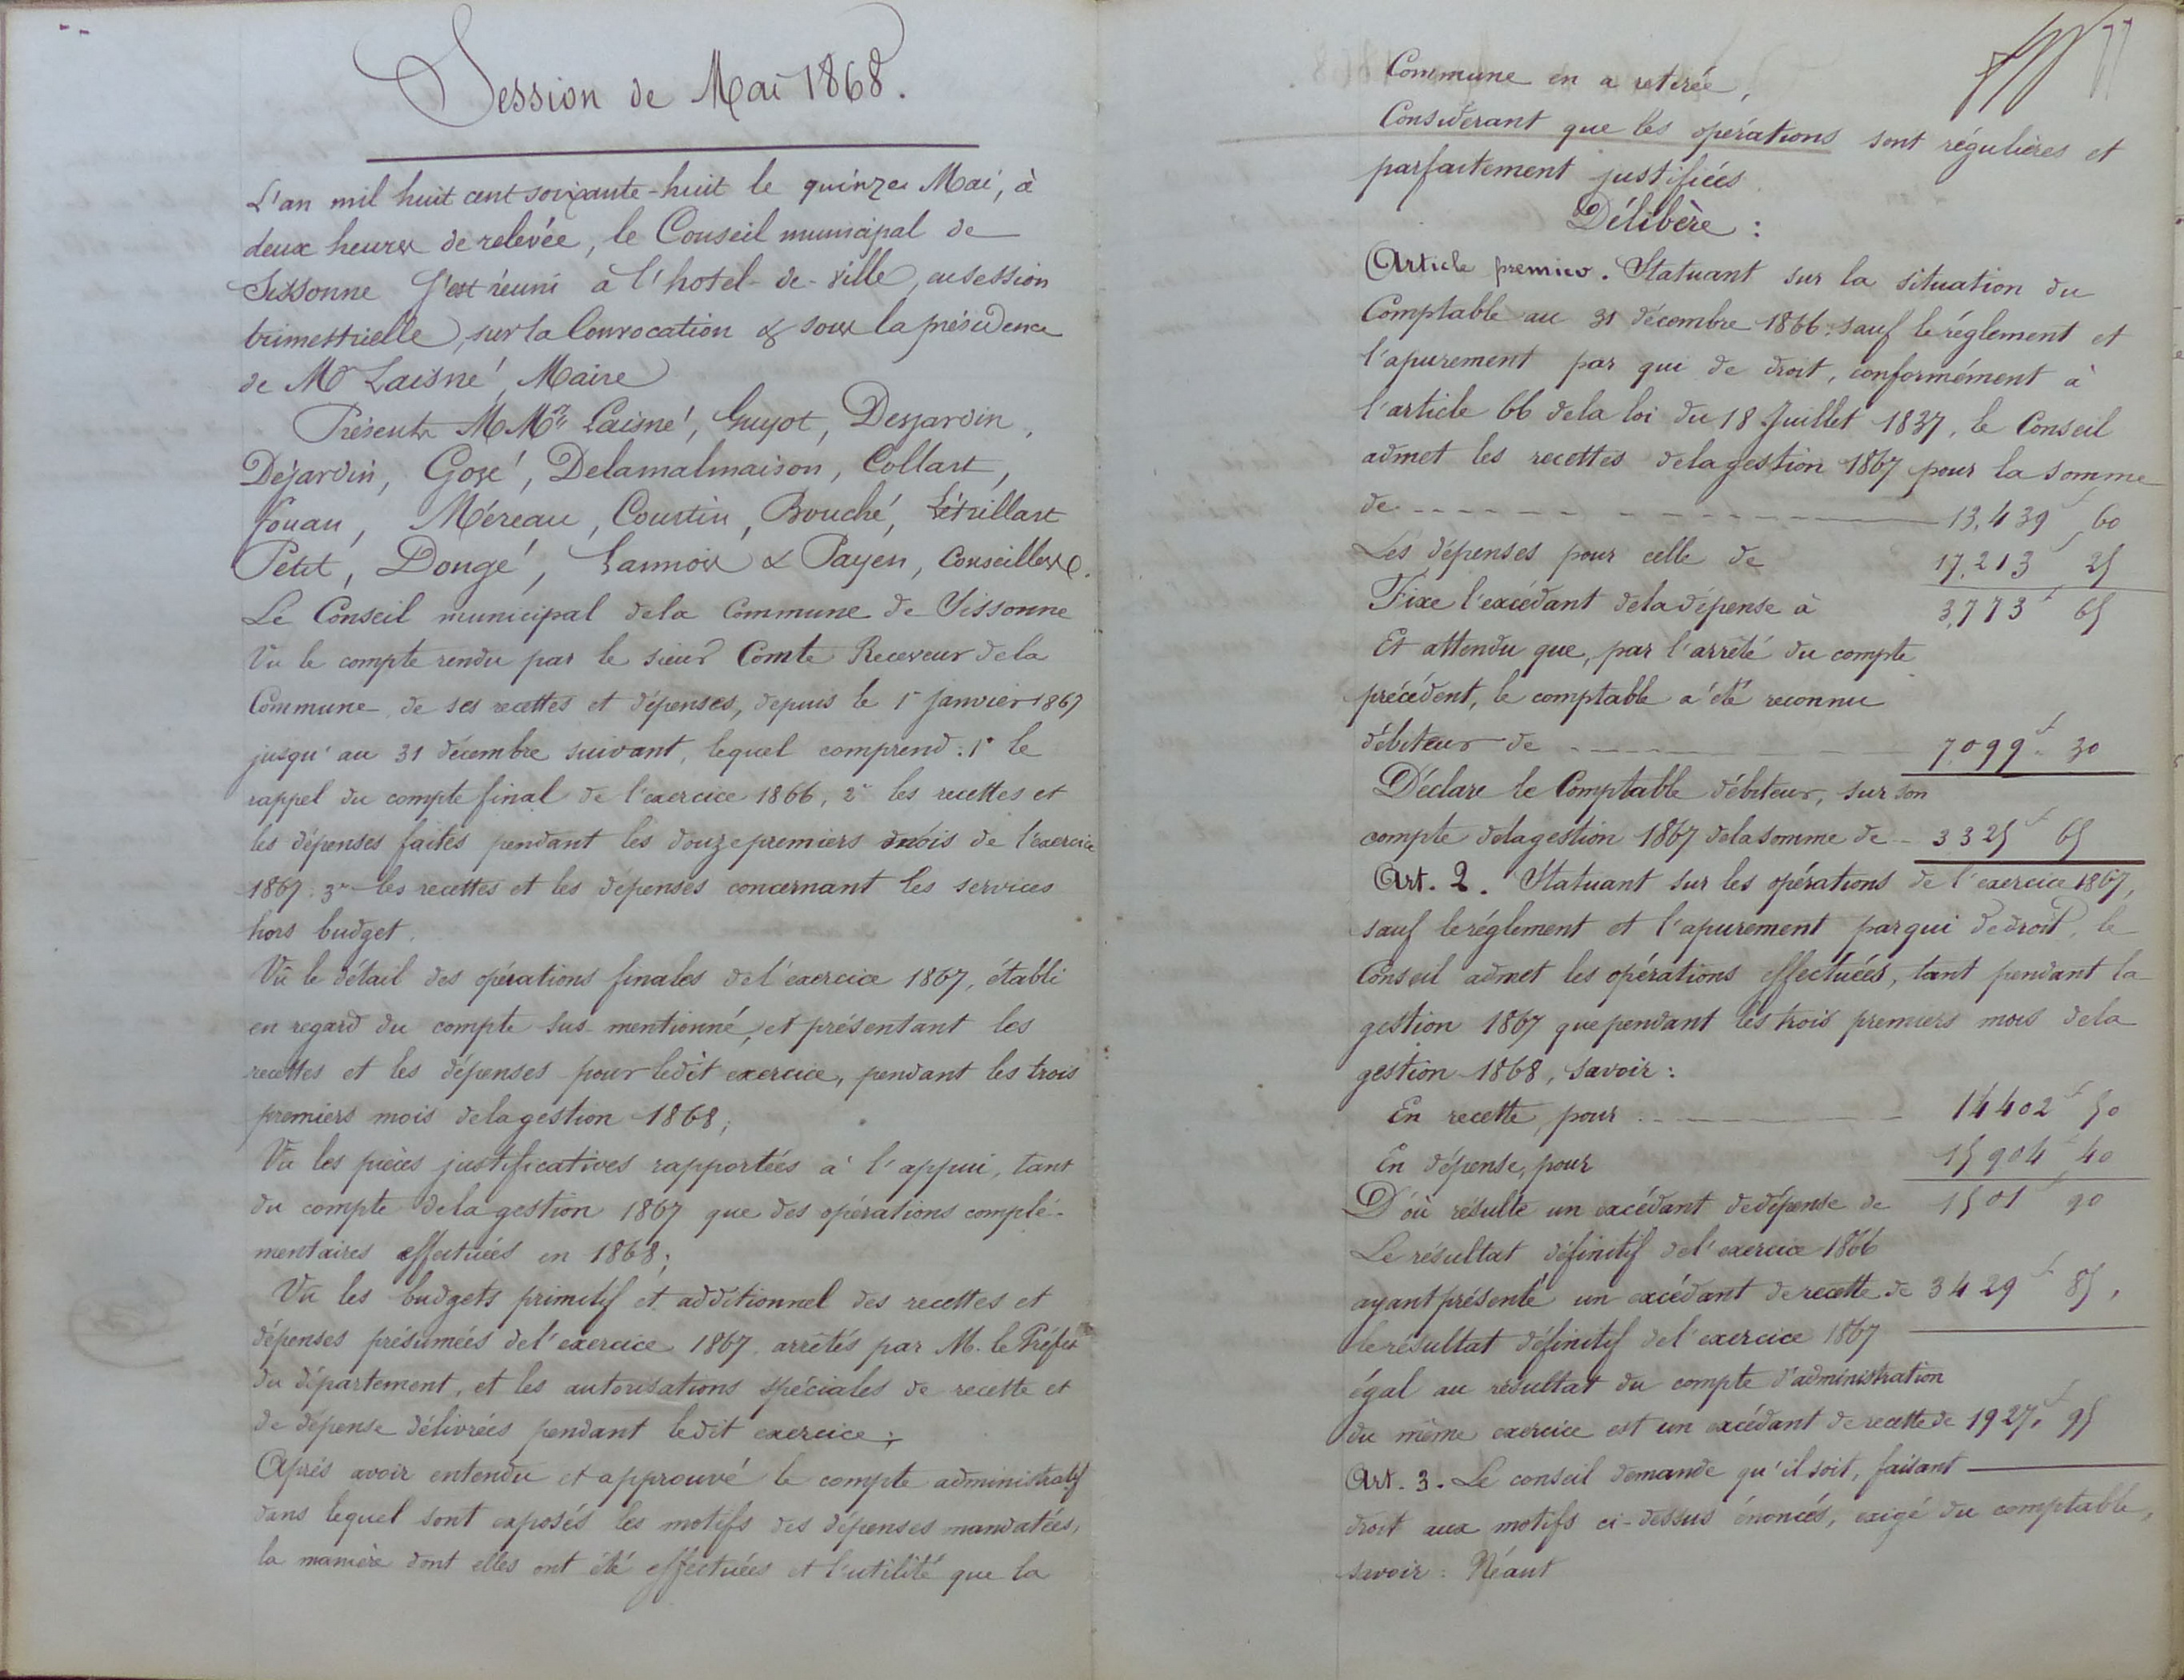 Session de Mai 1868.
L'an mil huit cent soixante-huit le quinze Mai, à
deux heures de relevée, le Conseil municipal de
Sissonne s'est réuni à l'hotel-de-ville, en session
trimestrielle, sur la Convocation & sous la présidence
de Mr Laisné, Maire
Présents MMrs Laisné, Guyot, Desjardin,
Déjardin, Gosé, Delamalmaison, Collart,
fouan, Méreau, Courtin, Bouché, Létrillart
Petit, Dongé, Lannois & Payen, Conseillers.
Le Conseil municipal de la Commune de Sissonne
Vu le compte rendu par le sieur Comte Receveur de la
Commune de ses recettes et dépenses, depuis le 1r Janvier 1867
jusqu'au 31 décembre suivant, lequel comprend : 1° le
rappel du compte final de l'exercice 1866, 2° les recettes et
les dépenses faites pendant les douze premiers mois de l'exercice
1867. 3° les recettes et les dépenses concernant les services
hors budget.
Vu le détail des opérations finales de l'exercice 1867, établi
en regard du compte sus-mentionné, et présentant les
recettes et les dépenses pour ledit exercice, pendant les trois
premiers mois de la gestion 1868;
Vu les pièces justificatives rapportées à l'appui, tant
du compte de la gestion 1867 que des opérations complé-
mentaires effectuées en 1868;
Vu les budgets primitif et additionnel des recettes et
dépenses présumées de l'exercice 1867, arrêtés par M. le Préfet
du département, et les autorisations spéciales de recette et
de dépense délivrées pendant ledit exercice;
Après avoir entendu et approuvé le compte administratif
dans lequel sont exposés les motifs des dépenses mandatées,
la manière dont elles ont été effectuées et l'utilité que la
77
Commune en a retirée,
Considérant que les opérations sont régulières et
parfaitement justifiées.
Délibère :
Article premier. Statuant sur la situation du
Comptable au 31 décembre 1866. sauf le réglement et
l'apurement par qui de droit, conformément à
l'article 66 de la loi du 18 Juillet 1837, le Conseil
admet les recettes de la gestion 1867 pour la somme
de 13,439f 60
Les dépenses pour celle de 17,213f 25
Fixe l'excédant de la dépense à 3,773f 65
Et attendu que, par l'arrêté du compte
précédent, le comptable a été reconnu
débiteur de 7,099f 30
Déclare le Comptable débiteur, sur son
compte de la gestion 1867 de la somme de 3325f 65
Art. 2. Statuant sur les opérations de l'exercice 1867,
sauf le réglement et l'apurement par qui de droit, le
Conseil admet les opérations effectuées, tant pendant la
gestion 1867 que pendant les trois premiers mois de la
gestion 1868, savoir :
En recette, pour 14402f 50
En dépense, pour 15904f 40
D'où résulte un excédant de dépense de 1501f 90
Le résultat définitif de l'exercice 1866
ayant présenté un excédant de recette de 3429f 85,
le résultat définitif de l'exercice 1867
égal au résultat du compte d'administration
du même exercice est un excédant de recette de 1927f 95
Art. 3. Le conseil demande qu'il soit, faisant
droit aux motifs ci-dessus énoncés, exigé du comptable,
savoir : Néant